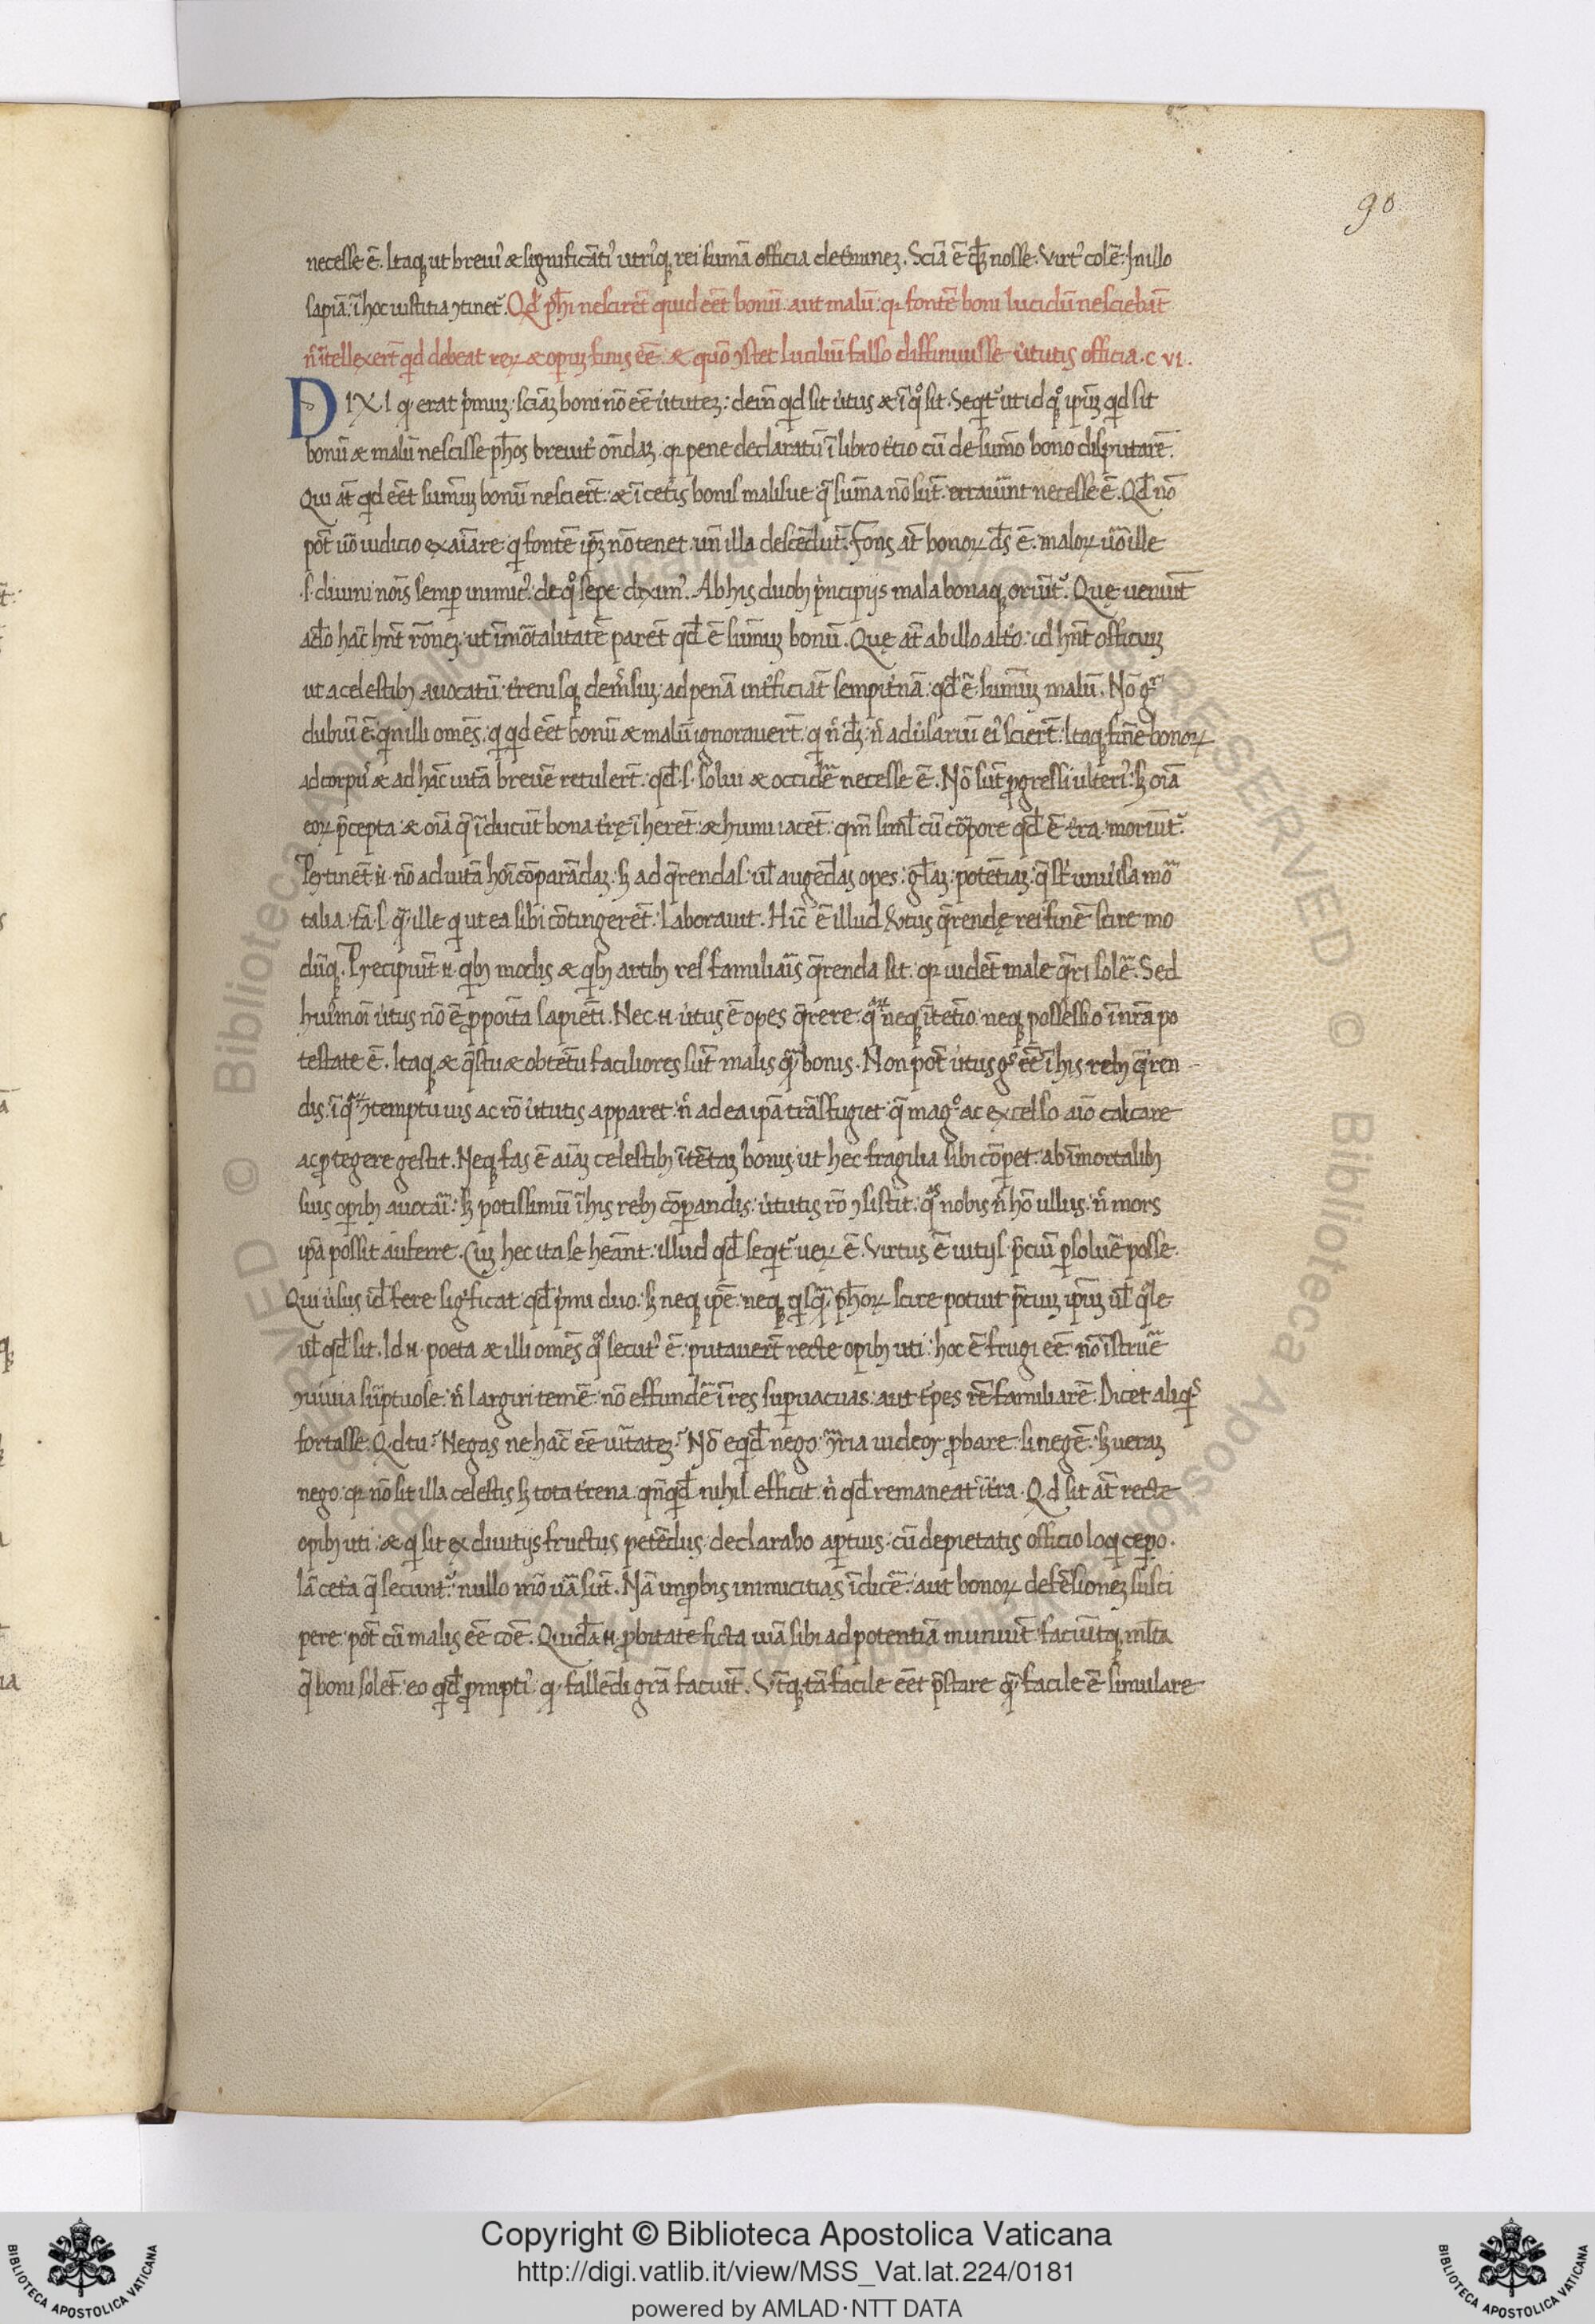 90
necesse ē. Itaq; ut breuit̾ ⁊ significāt̾i utriq; rei sumā officia det̾minem. Sciā ē dm̄ nosse. Virt᷒ colē. In illo
sapiā. ī hoc iustitia ꝯtinet᷑. Qd̾ ph̄i nescirēt quid eēt bonū. aut malū. qr fontē boni lucidū nesciebāt
n̄ ītellexert̄ qd̄ debeat rerum ⁊ operum finis eē. ⁊ quō ꝯstet luciliū falso diffiniuisse u̾tutis officia. c vi.
DIXI q̄ erat p̾mum. sciam boni nō eē u̾tutem. dein̄ qd̄ sit u̾tus ⁊ ī q° sit. Seqt᷑ ut id q°q; ipm̄ qd̄ sit
bonū ⁊ malū nescisse ph̄os breuit̾ ondam. qr pene declaratū ī libro t̾tio cū de sumo bono disputarē.
Qui āt qd̄ eēt sumū bonū nesciert̄. ⁊ ī cet̾is bonis malisue q̄ suma nō sūt. erraui̾nt necesse ē. Qd̄ nō
pōt u̾o iudicio exaīare q fontē ipm̄ nō tenet. un̄ illa descēdūt. Fons āt bonorum ds̄ ē. malorum u̾o ille
.s. diuini noīs semp inimic᷒. de q° sepe dixim᷒. Ab his duob; p̾ncipijs mala bonaq; oriūt᷑. Quę ueniūt
a do hāc hn̄t ronem. ut īmōtalitatē parēt qd̄ ē sumum bonū. Quę āt ab illo alt̾o. id hn̄t officium
ut a celestib; auocatū. t̾renisq; dem̾sum. ad penā int̾ficiāt sempit̾nā. qd̄ ē sumum malū. Nō g°
dubiū ē. quin illi omēs. q qd eēt bonū ⁊ malū ignorauert̄. q n̄ dm̄. n̄ adu̾sariū ei᷒ sciert̄. Itaq; finē bonorum
ad corp᷒ ⁊ ad hāc uitā breuē retulert̄. qd̄ .s. solui ⁊ occidē necesse ē. Nō sūt p̄gressi ulteri᷒. s; oīa
eorum p̄cepta. ⁊ oīa q̄ īducūt bona t̾rę īherēt. ⁊ humi iacēt. qm̄ siml̄ cū corpore qd̄ ē t̾ra moriūt᷑.
Pertinēt n. nō ad uitā hoī cōparādam. s; ad q̄rendas. ul̄ augēdas opes. gl̄am. potētiam. q̄ st̄ uniu̾sa mor
talia. tā .s. q̄ ille q ut ea sibi cōtingerēt. laborauit. Hīc ē illud. Virtus q̄rendę rei finē scire mo
dūq;. Precipiūt n. qb; modis ⁊ qb; artib; res familiaris q̄renda sit. qr uidēt male q̄ri solē. Sed
hui᷒moī u̾tus nō ē p̄posita sapiēti. Nec n. u̾tus ē opes q̄rere. q̄rum neq; ītētio neq; possessio ī nr̄a po
testate ē. Itaq; ⁊ q̄stu ⁊ obtētu faciliores sūt malis q̄ bonis. Non pōt u̾tus g° eē ī his reb; q̄ren
dis. ī q̄rum ꝯtemptu uis ac rō u̾tutis apparet. n̄ ad ea ipa trāsfugiet. q̄ mag° ac excelso aīo calcare
ac p̄tegere gestit. Neq; fas ē aīam celestib; ītētam bonis. ut hec fragilia sibi cōpet. ab īmortalib;
suis opib; auocari. s; potissimū ī his reb; cōparandis. u̾tutis rō ꝯsistit. q̄s nobis n̄ hō ullus. n̄ mors
ipa possit auferre. Cum hec ita se heānt. illud qd̄ seqt᷑ uerum ē. Virtus ē uitijs p̄ciū psoluē posse.
Qui u̾sus id̄ fere sig̾ficat qd̄ p̾mi duo. s; neq; ipē. neq; qsq̄ ph̄orum scire potuit p̄cium ipm̄ ul̄ q̄le
ul̄ qd̄ sit. Id n. poeta ⁊ illi omēs q°s secut᷒ ē. putauert̄ recte opib; uti. hoc ē frugi eē. nō īstruē
ꝯuiuia sūptuose. n̄ largiri temē. nō effundē ī res supuacuas. aut t̾pes rē familiarē. Dicet aliqs
fortasse. Qd tu? Negas ne hāc eē uirtatem? Nō eqd̄ nego. ꝯt̾ria uideor probare. si negē. s; ueram
nego. qr nō sit illa celestis s; tota t̾rena. qn̄qd̄ nihil efficit. n̄ qd̄ remaneat ī t̾ra. Qd sit āt recte
opib; uti. ⁊ q sit ex diuitijs fructus petēdus. declarabo aptius. cū de pietatis officio loqi cepo.
Iā cet̾a q̄ secunt᷑. nullo mō u̾a sūt. Nā improbis inimicitias īdicē. aut bonorum defēsionem susci
pere. pōt cū malis eē coē. Quidā n. pbitate ficta uiā sibi ad potentiā muniūt. faciūtq; ml̄ta
q̄ boni solēt. eo qd̄ prompti᷒. q. fallēdi gr̄a faciūt. Vtq; tā facile eēt p̄stare q̄ facile ē simulare
Copyright © Biblioteca Apostolica Vaticana
http://digi.vatlib.it/view/MSS_Vat.lat.224/0181
powered by AMLAD·NTT DATA
BIBLIOTECA APOSTOLICA VATICANA
BIBLIOTECA APOSTOLICA VATICANA